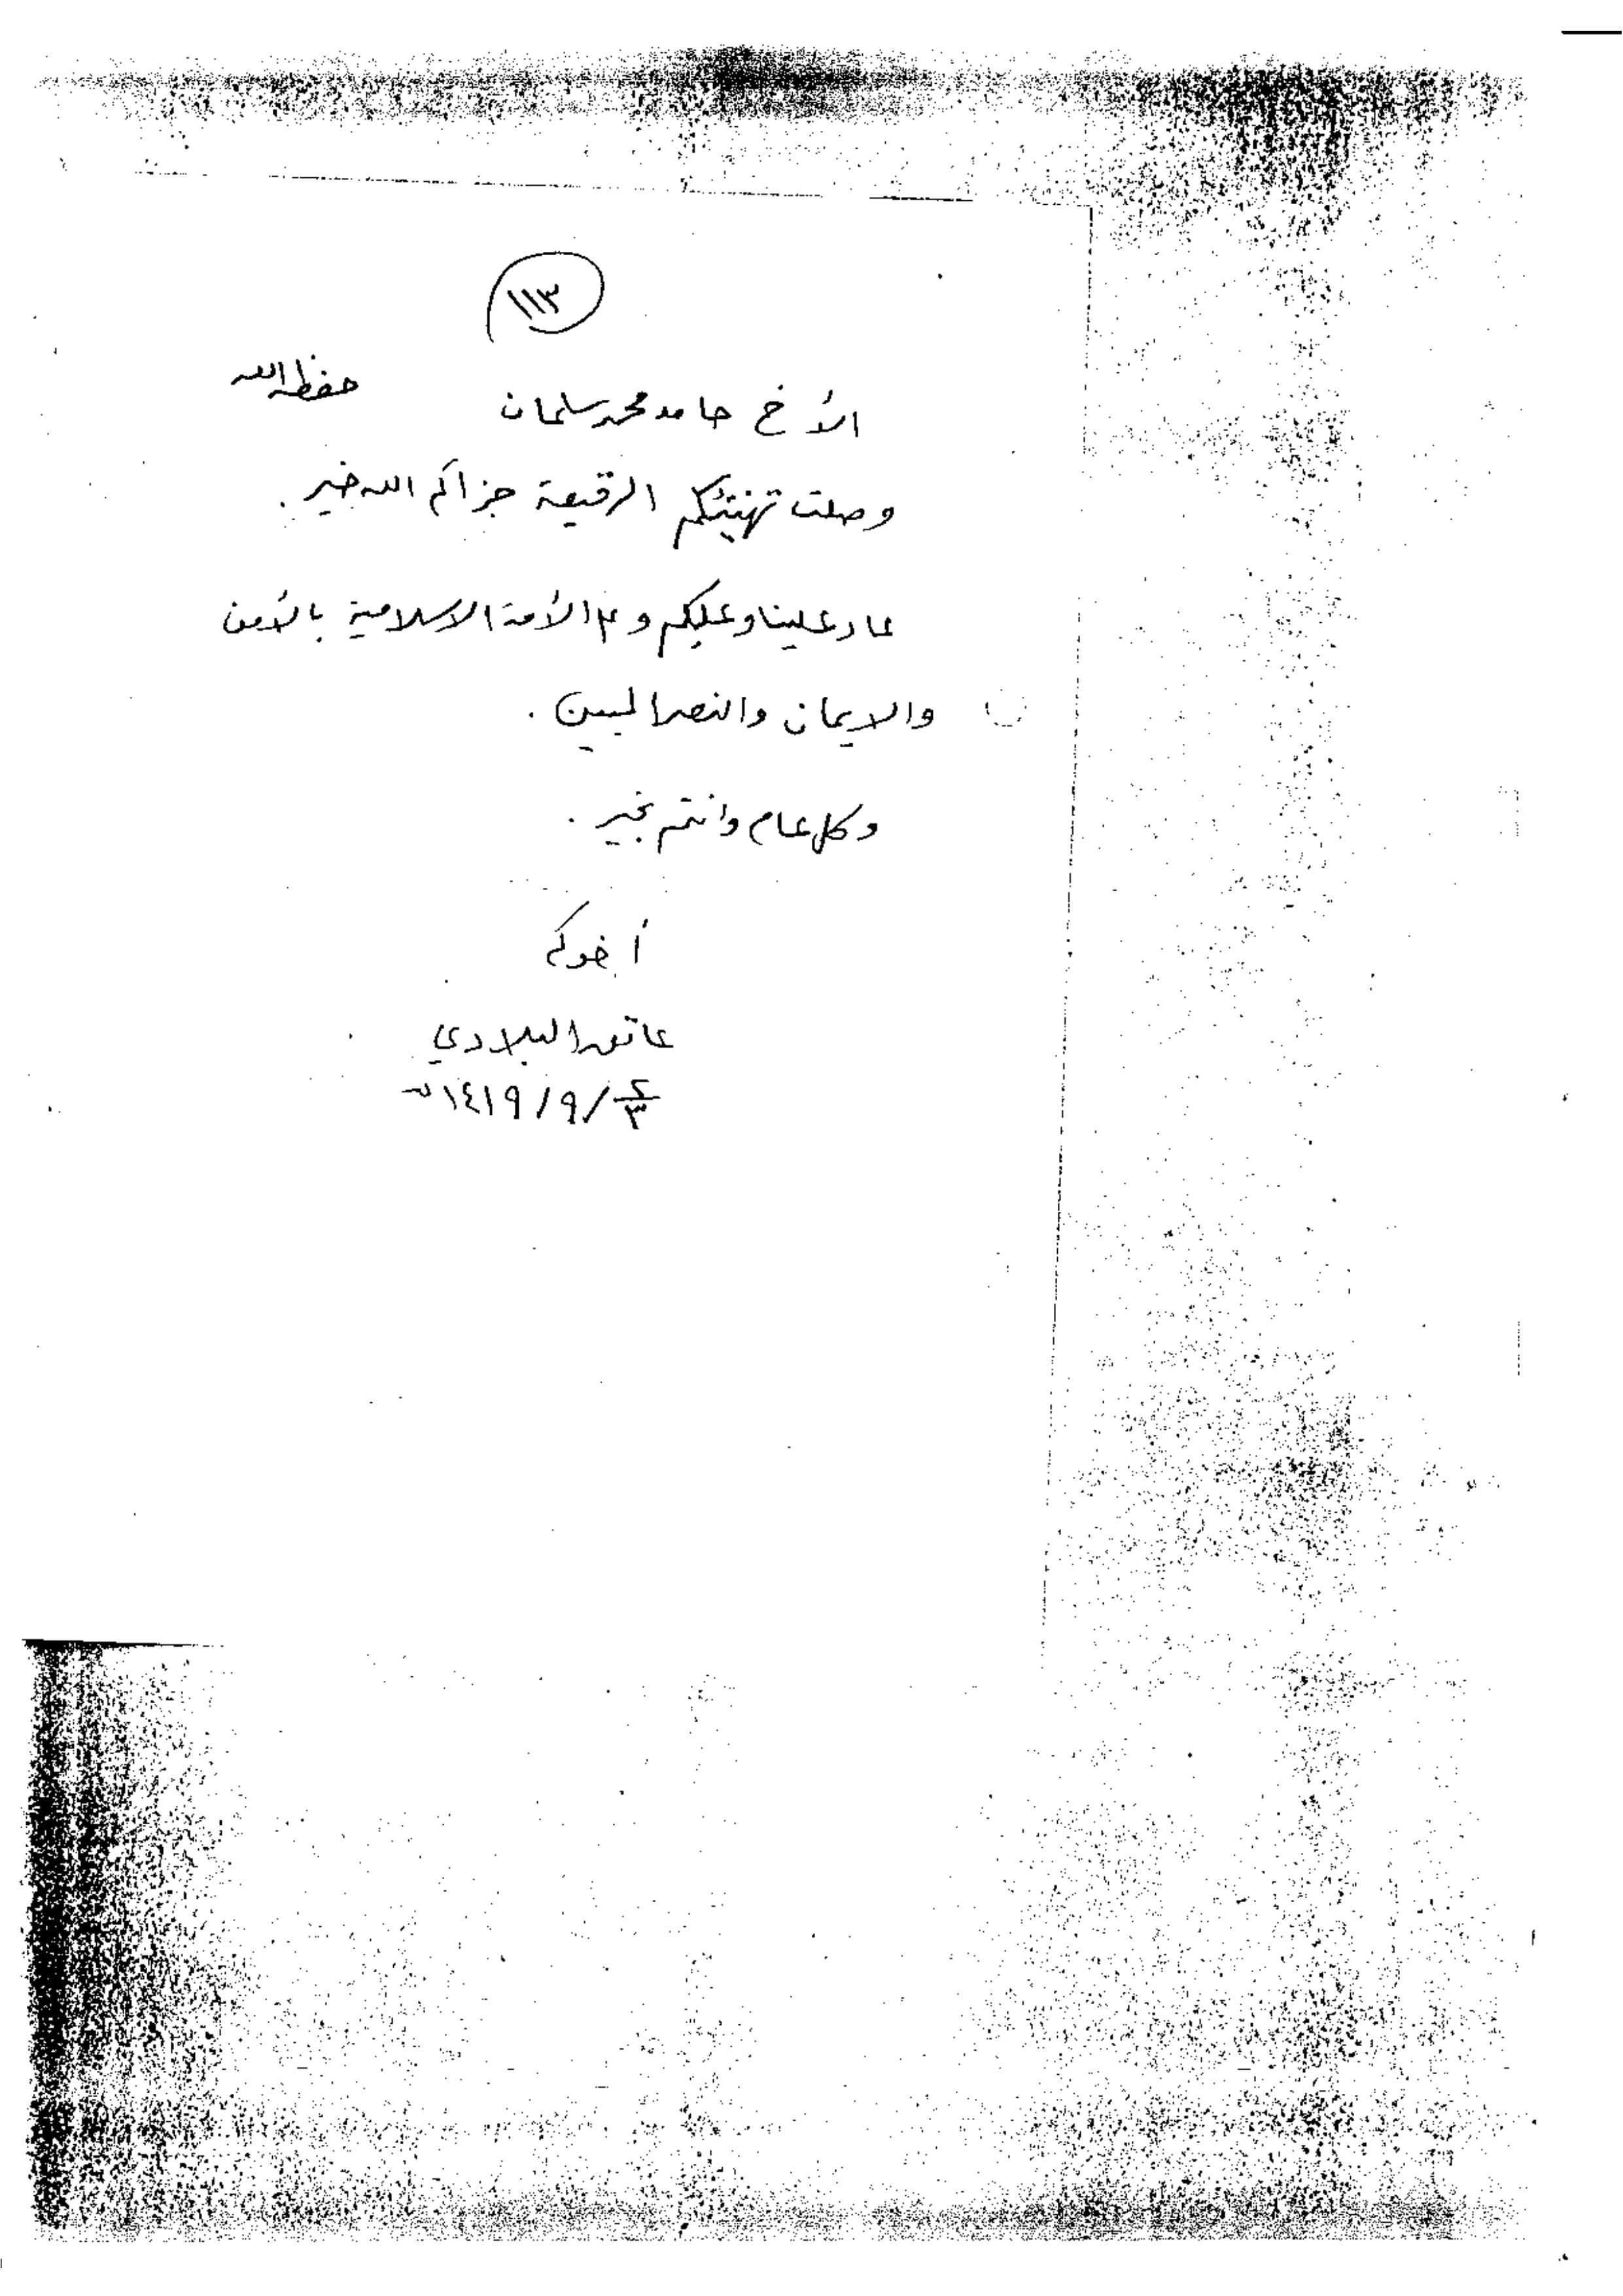 ١١٣
الأخ حامد محمد سلمان حفظه الله
وصلت تهنئتكم الرقيقة جزاكم الله خير .
عاد علينا وعليكم و الأمة الاسلامية بالأمن
والايمان والنصر المبين .
وكل عام وانتم بخير .
أخوكم
عاتق البلادي
١٤١٩/٩/ هـ